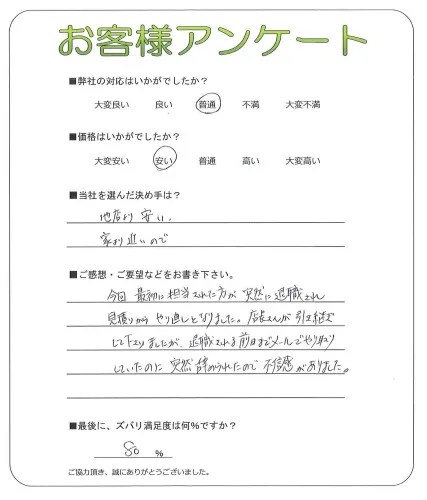 お客様アンケート
■弊社の対応はいかがでしたか？
大変良い 良い 普通 不満 大変不満
■価格はいかがでしたか？
大変安い 安い 普通 高い 大変高い
■当社を選んだ決め手は？
他店より安い、
家より近いので
■ご感想・ご要望などをお書き下さい。
今回 最初に担当された方が突然に退職され
見積りからやり直しとなりました。店長さんが引き継ぎ
して下さりましたが、退職される前日までメールでやり取り
していたのに突然辞められたので不信感がありました。
■最後に、ズバリ満足度は何％ですか？
80 %
ご協力頂き、誠にありがとうございました。